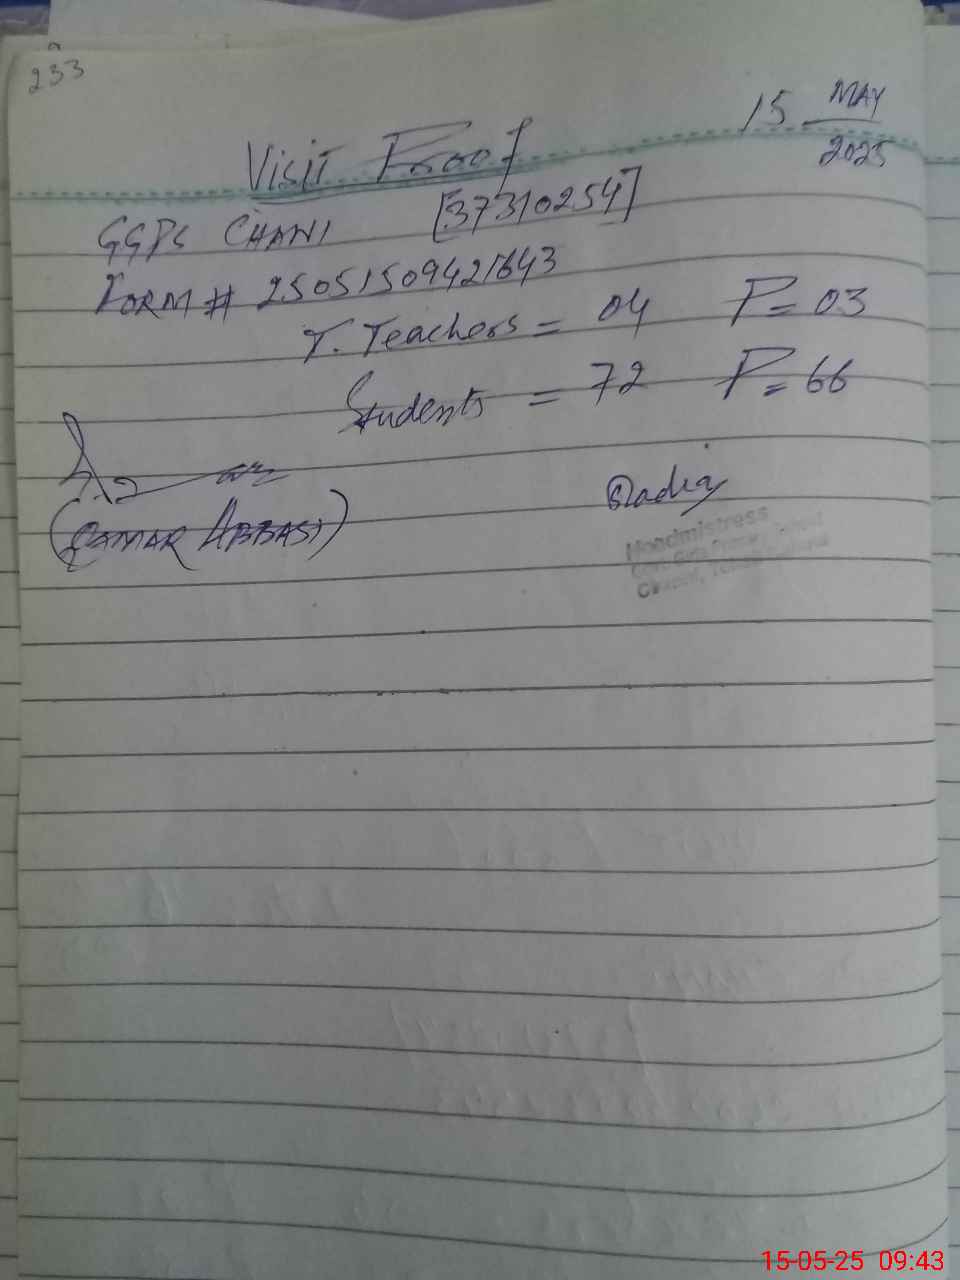 233
15 MAY
2025
Visit Proof
GGPS CHANI [37310254]
FORM # 25051509421643
T. Teachers = 04 P = 03
Students = 72 P = 66
(QAMAR ABBASI)
Headmistress
Govt. Girls Primary School
15-05-25 09:43